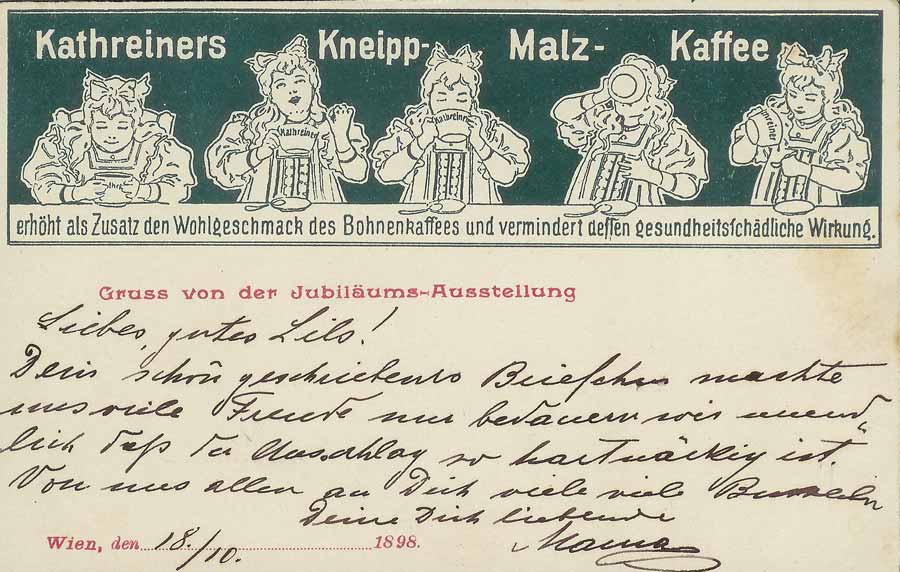 Kathreiners Kneipp- Malz- Kaffee
Kathreiner
Kathreiner
erhöht als Zusatz den Wohlgeschmack des Bohnenkaffees und vermindert dessen gesundheitsschädliche Wirkung.
Gruss von der Jubiläums-Ausstellung
Liebes, gutes Lils!
Dein schön geschriebenes Briefchen machte
uns viele Freude nur bedauern wir unend„
lich daß der Ausschlag so hartnäckig ist.
Von uns allen an Dich viele viele Busseln
Deine Dich liebende
Mama
Wien, den 18./10. 1898.